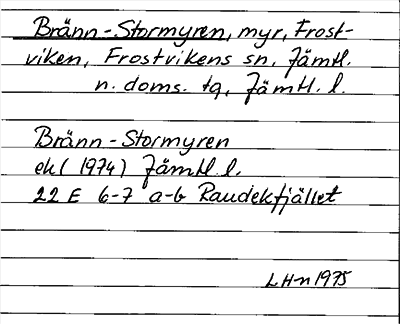 Bränn-Stormyren, myr, Frost-
viken, Frostvikens sn, Jämtl.
n. doms. tg, Jämtl. l.
Bränn-Stormyren
ek (1974) Jämtl l.
22 E 6-7 a-b Raudekfjället
LH-n 1975